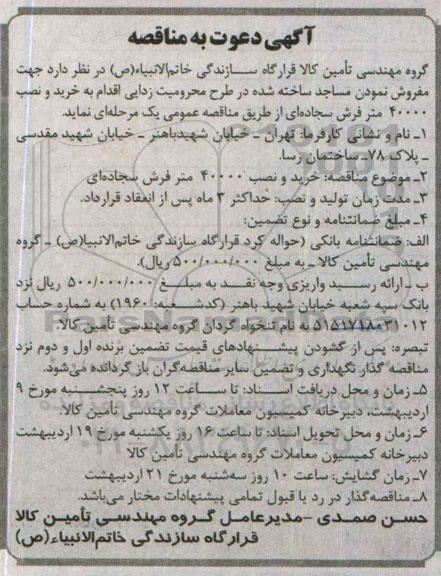 آگهی دعوت به مناقصه
گروه مهندسی تأمین کالا قرارگاه سازندگی خاتم‌الانبیاء(ص) در نظر دارد جهت
مفروش نمودن مساجد ساخته شده در طرح محرومیت زدایی اقدام به خرید و نصب
۴۰۰۰۰ متر فرش سجاده‌ای از طریق مناقصه عمومی یک مرحله‌ای نماید.
۱ـ نام و نشانی کارفرما: تهران ـ خیابان شهیدباهنر ـ خیابان شهید مقدسی
ـ پلاک ۷۸ـ ساختمان رسا.
۲ـ موضوع مناقصه: خرید و نصب ۴۰۰۰۰ متر فرش سجاده‌ای
۳ـ مدت زمان تولید و نصب: حداکثر ۳ ماه پس از انعقاد قرارداد.
۴ـ مبلغ ضمانتنامه و نوع تضمین:
الف: ضمانتنامه بانکی (حواله کرد قرارگاه سازندگی خاتم‌الانبیا(ص) ـ گروه
مهندسی تأمین کالا ـ به مبلغ ۵۰۰/۰۰۰/۰۰۰ ریال).
ب ـ ارائه رسید واریزی وجه نقد به مبلغ ۵۰۰/۰۰۰/۰۰۰ ریال نزد
بانک سپه شعبه خیابان شهید باهنر (کدشعبه: ۱۹۶۰) به شماره حساب
۵۱۵۱۷۱۸۰۳۱۰۱۲ به نام تنخواه گردان گروه مهندسی تأمین کالا.
تبصره: پس از گشودن پیشنهادهای قیمت تضمین برنده اول و دوم نزد
مناقصه گذار نگهداری و تضمین سایر مناقصه‌گران باز گردانده می‌شود.
۵ـ زمان و محل دریافت اسناد: تا ساعت ۱۲ روز پنجشنبه مورخ ۹
اردیبهشت، دبیرخانه کمیسیون معاملات گروه مهندسی تأمین کالا.
۶ـ زمان و محل تحویل اسناد: تا ساعت ۱۶ روز یکشنبه مورخ ۱۹ اردیبهشت
دبیرخانه کمیسیون معاملات گروه مهندسی تأمین کالا
۷ـ زمان گشایش: ساعت ۱۰ روز سه‌شنبه مورخ ۲۱ اردیبهشت
۸ـ مناقصه‌گذار در رد یا قبول تمامی پیشنهادات مختار می‌باشد.
حسن صمدی - مدیرعامل گروه مهندسی تأمین کالا
قرارگاه سازندگی خاتم‌الانبیاء(ص)